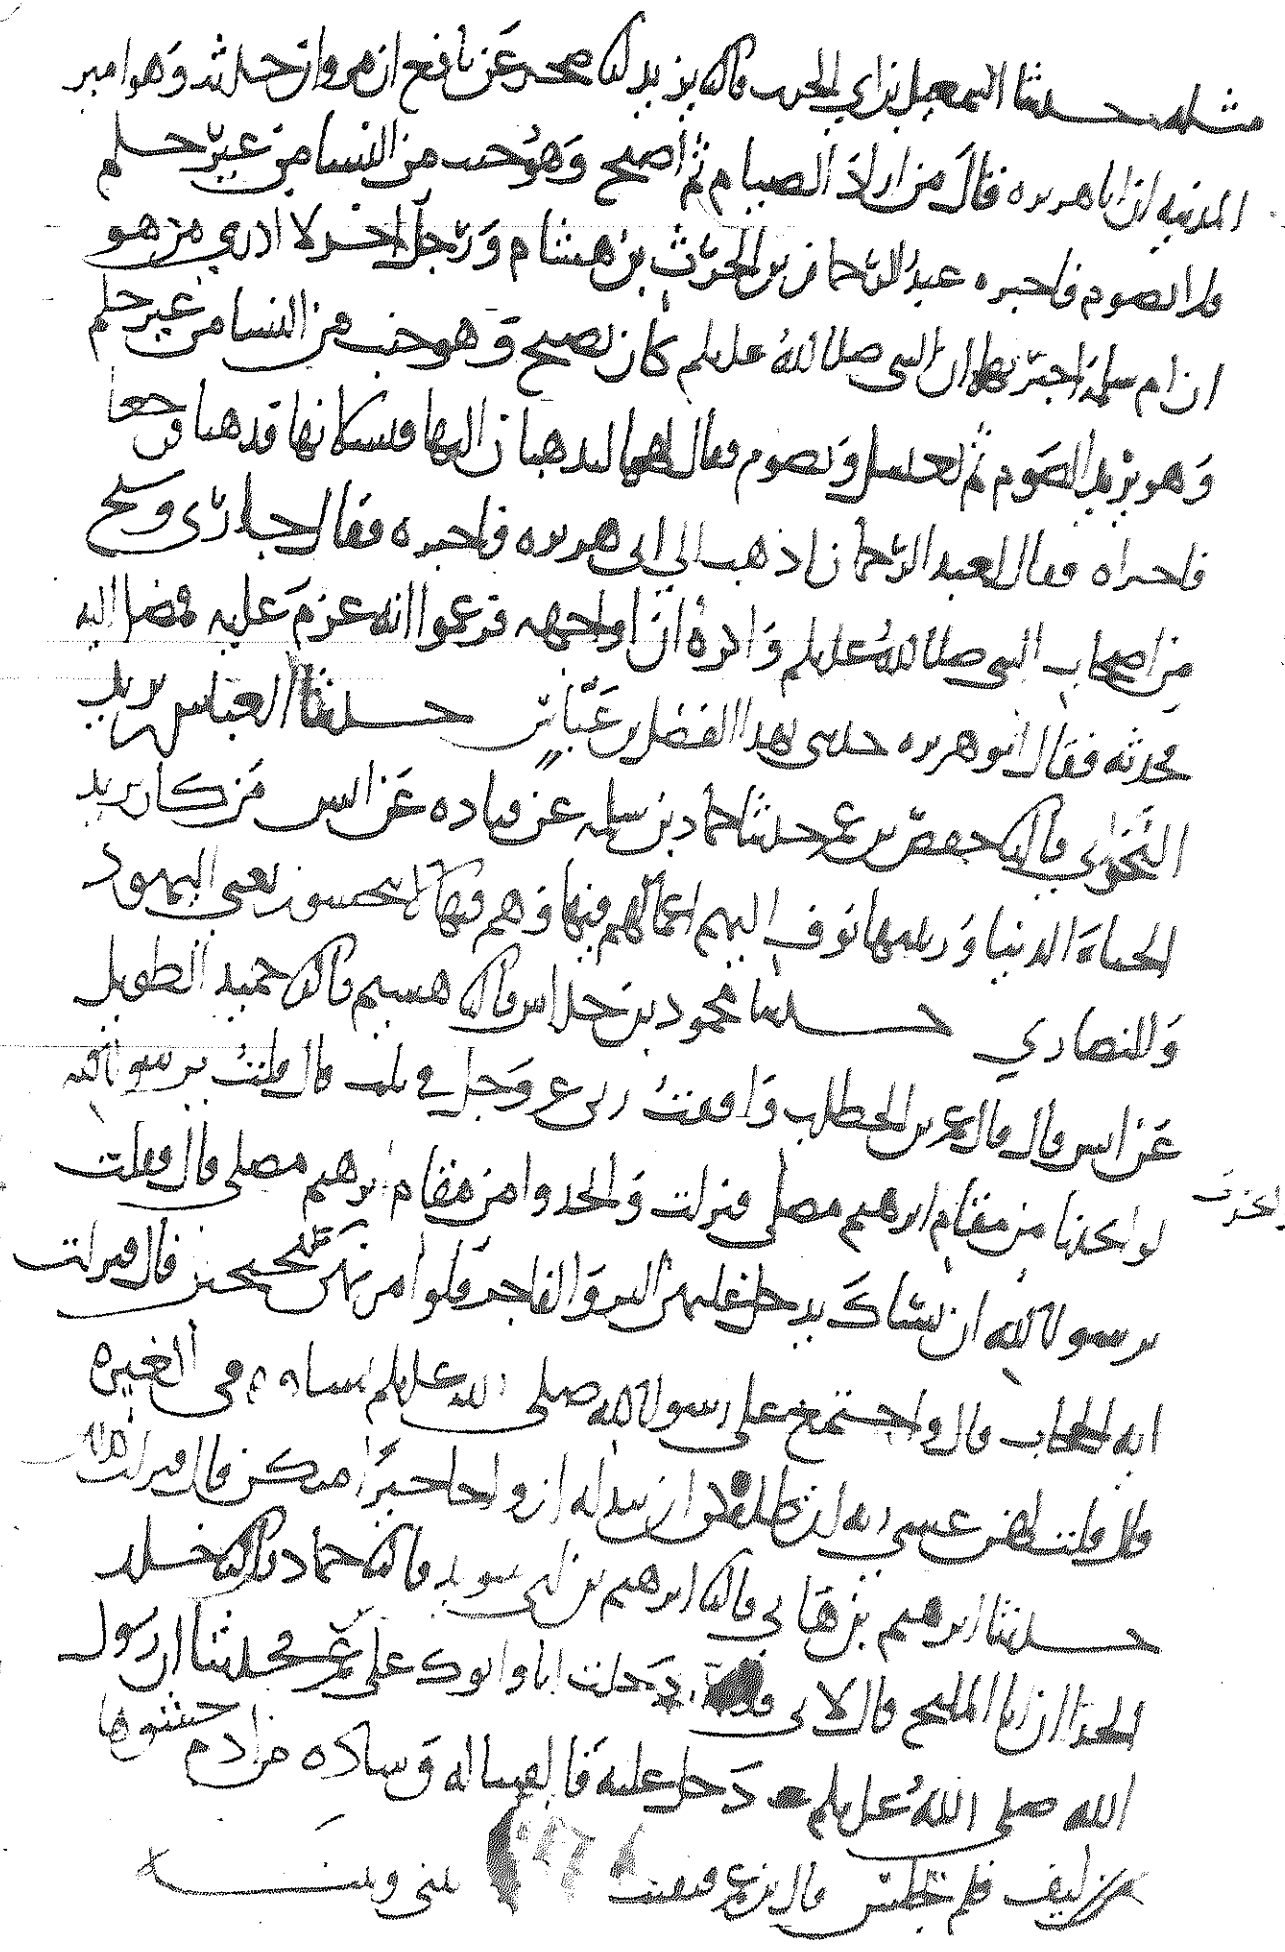 مثله حدثنا اسمعيل بن ابي الحرث قال نا يزيد انا صخر عن نافع ان مروان حدثه وهو امير
المدينه ان ابا هريره قال من اراد الصيام ثم اصبح وهو جنب من النسا من غير حلم
فلا يصوم فاخبره عبد الرحمان بن الحرث بن هشام ورجل اخر لا ادري من هو
ان ام سلمة اخبرتهما ان النبي صلى الله عليلم كان يصبح وهو جنب من النسا من غير حلم
وهو يريد الصوم ثم يغتسل ويصوم فقال لهما ليذهبان اليها فليسالانها فذهبا فرجعا
فاخبراه فقال لعبد الرحمان اذهب الى ابي هريره فاخبره فقال جاري وشيخ
من اصحاب النبي صلى الله عليلم واكره ان اواجهه فزعموا انه عزم عليه فمضا اليه
فحدثه فقال ابو هريره حدثني بهذا الفضل بن عباس حدثنا العباس بن يزيد
البحراني قال نا حفص بن عمر حدثنا حماد بن سلمه عن قتاده عن انس من كان يريد
الحياة الدنيا وزينتها نوف اليهم اعمالهم فيها وهم فيها لا يبخسون يعني اليهود
والنصارى حدثنا محمود بن خداس قال نا هشيم قال نا حميد الطويل
عن انس قال قال عمر بن الخطاب وافقت ربي عز وجل في ثلث قال قلت يرسول الله
لو اتخذنا من مقام ابرهيم مصلى فنزلت واتخذوا من مقام ابرهيم مصلى قال وقلت
يرسول الله ان نساك يدخل عليهن البر والفاجر فلو امرتهن يحتجبن قال فنزلت
ايه الحجاب قال واجتمع على رسول الله صلى الله عليلم نساوه في الغيره
قال قلت لهن عسى ربه ان طلقكن ان يبدله ازواجا خيرا منكن قال فنزلت كذلك
حدثنا ابرهيم بن هاني قال نا ابرهيم بن ابي سويد قال نا حماد قال نا خلد
الحذا ان ابا المليح قال لابي قلابة دخلت انا وابوك على عمر فحدثنا ان رسول
الله صلى الله عليلم دخل عليه فالقى له وساده من ادم حشوها
ليف فلم يجلس قال بن عمر فبقيت بيني وبينه